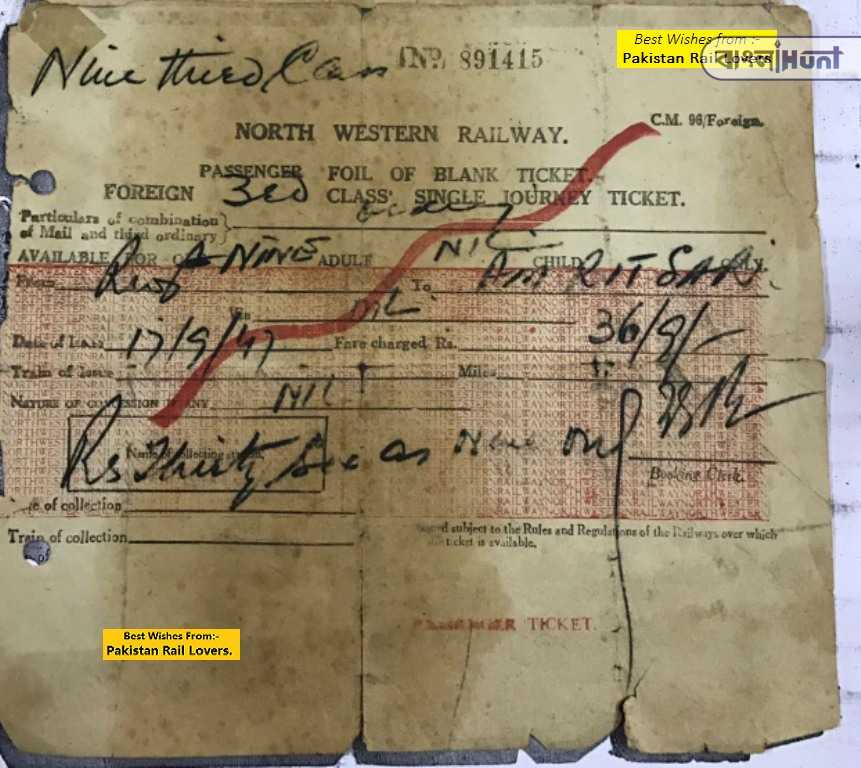 Nine third Class
No. 891415
Best Wishes from :-
Pakistan Rail Lovers
বাংলাHunt
C.M. 96/Foreign.
NORTH WESTERN RAILWAY.
PASSENGER FOIL OF BLANK TICKET.
FOREIGN 3rd CLASS' SINGLE JOURNEY TICKET.
Particulars of combination
of Mail and third ordinary}
AVAILABLE FOR NINE ADULT NIL CHILD ONLY.
From To AMRITSAR.
Via NIL
Date of Issue 17/9/47 Fare charged Rs. 36/9/-
Train of Issue Miles
NATURE OF CONCESSION IF ANY NIL
Name of collecting
Rs Thirty Six as Nine only
Booking Clerk.
of collection
Train of collection
subject to the Rules and Regulations of the Railways over which
ticket is available.
PASSENGER TICKET.
Best Wishes From:-
Pakistan Rail Lovers.